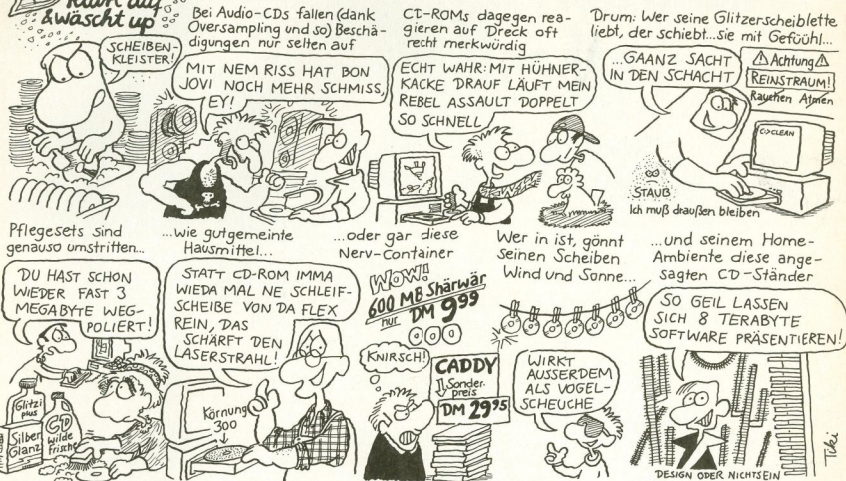 räumt auf
& wäscht up
SCHEIBEN-
KLEISTER!
Bei Audio-CDs fallen (dank
Oversampling und so) Beschä-
digungen nur selten auf
MIT NEM RISS HAT BON
JOVI NOCH MEHR SCHMISS,
EY!
CD-ROMs dagegen rea-
gieren auf Dreck oft
recht merkwürdig
ECHT WAHR: MIT HÜHNER-
KACKE DRAUF LÄUFT MEIN
REBEL ASSAULT DOPPELT
SO SCHNELL
Drum: Wer seine Glitzerscheiblette
liebt, der schiebt...sie mit Gefüühl...
...GAANZ SACHT
IN DEN SCHACHT
Achtung
REINSTRAUM!
Rauchen Atmen
C>CLEAN
STAUB
Ich muß draußen bleiben
Pflegesets sind
genauso umstritten...
DU HAST SCHON
WIEDER FAST 3
MEGABYTE WEG-
POLIERT!
Glitzi
plus
Silber
Glanz
CD
Wilde
Frische
...wie gutgemeinte
Hausmittel...
STATT CD-ROM IMMA
WIEDA MAL NE SCHLEIF-
SCHEIBE VON DA FLEX
REIN, DAS
SCHÄRFT DEN
LASERSTRAHL!
Körnung
300
...oder gar diese
Nerv-Container
WOW!
600 MB Shärwär
nur DM 9 99
KNIRSCH!
CADDY
Sonder-
preis
DM 29 95
Wer in ist, gönnt
seinen Scheiben
Wind und Sonne...
WIRKT
AUSSERDEM
ALS VOGEL-
SCHEUCHE
...und seinem Home-
Ambiente diese ange-
sagten CD-Ständer
SO GEIL LASSEN
SICH 8 TERABYTE
SOFTWARE PRÄSENTIEREN!
DESIGN ODER NICHTSEIN
Tiki